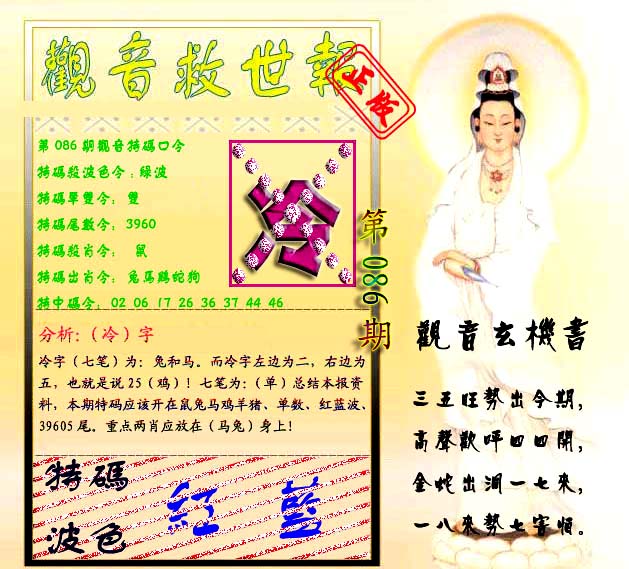 觀音救世報
正版
第 086 期觀音特碼口令
特碼殺波色令：綠波
特碼單雙令： 雙
特碼尾數令： 3960
特碼殺肖令： 鼠
特碼出肖令： 兔馬鷄蛇狗
特中碼令： 02 06 17 26 36 37 44 46
冷
第086期
分析：（冷）字
冷字（七笔）为：兔和马。而冷字左边为二，右边为
五，也就是说 25（鸡）！七笔为：（单）总结本报资
料，本期特码应该开在鼠兔马鸡羊猪、单数、红蓝波、
39605 尾。重点两肖应放在（马兔）身上！
特碼
波色
紅 藍
觀音玄機書
三五旺勢出今期，
高聲歡呼四四開，
金蛇出洞一七來，
一八來勢七害恒。